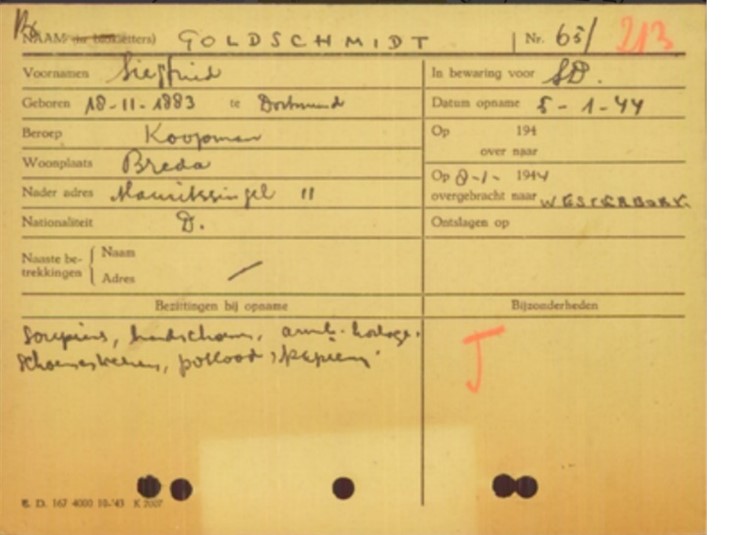 NAAM (in blokletters) GOLDSCHMIDT Nr. 65/ 213
Voornamen Siegfried
In bewaring voor SD.
Geboren 18-11-1883 te Dortmund
Datum opname 5-1-44
Beroep Koopman
Op 194
over naar
Woonplaats Breda
Op 8-1- 1944
overgebracht naar WESTERBORK
Nader adres Mauritssingel 11
Nationaliteit D.
Ontslagen op
Naaste be-
trekkingen
Naam
Adres
Bezittingen bij opname
Bijzonderheden
handschoen, armb. horloge,
potlood, papieren
J
E. D. 167 4000 10-'43 K 2007